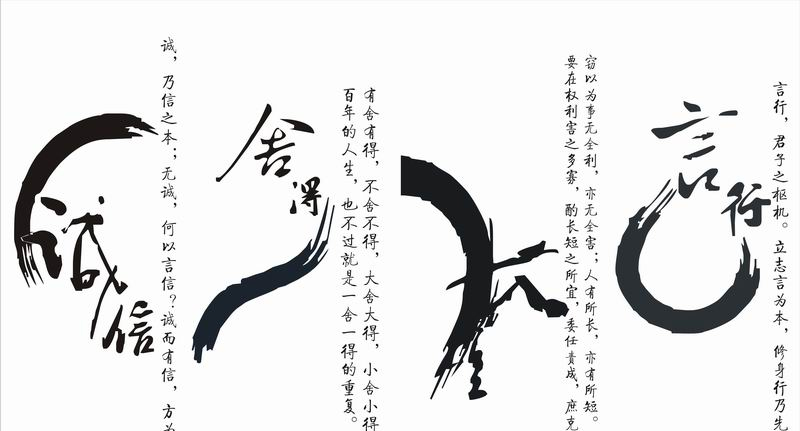 诚信
诚，乃信之本；无诚，何以言信？诚而有信，方为
舍得
有舍有得，不舍不得，大舍大得，小舍小得
百年的人生，也不过就是一舍一得的重复。
窃以为事无全利，亦无全害；人有所长，亦有所短。
要在权利害之多寡，酌长短之所宜，委任责成，庶克
言行
言行，君子之枢机。立志言为本，修身行乃先